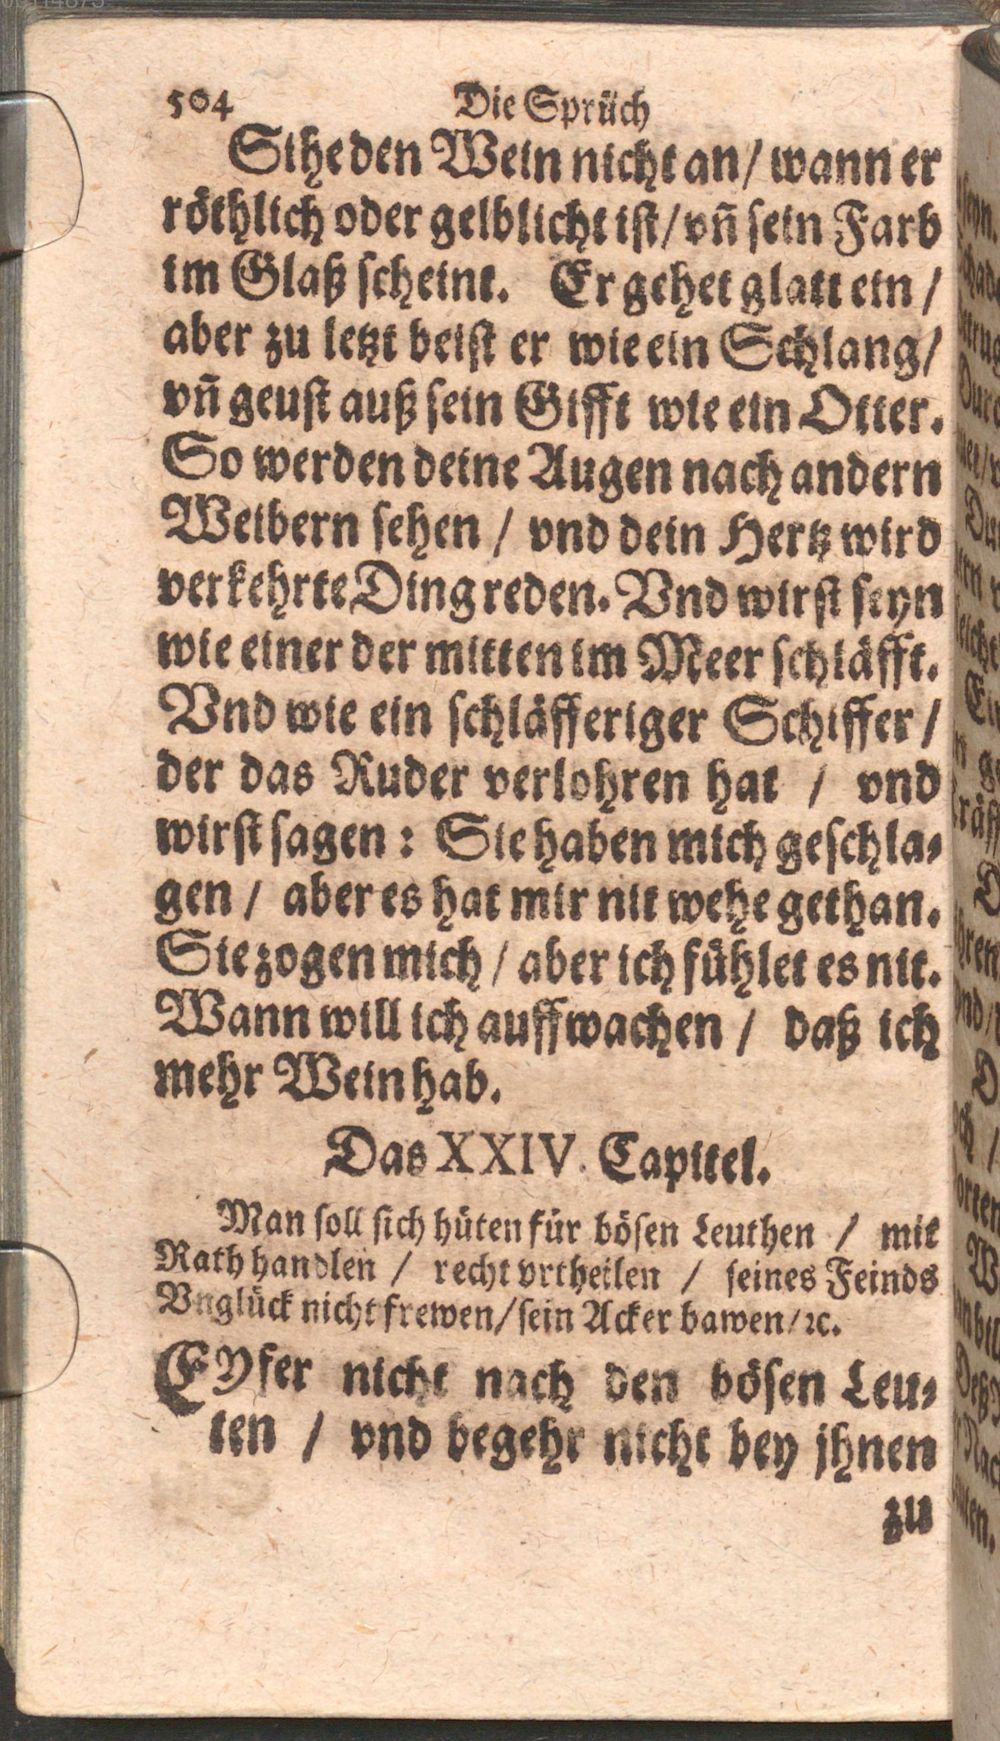 504 Die Sprüch
Sihe den Wein nicht an / wann er
röthlich oder gelblicht ist / vñ sein Farb
im Glaß scheint. Er gehet glatt ein /
aber zu letzt beist er wie ein Schlang /
vñ geust auß sein Gifft wie ein Otter.
So werden deine Augen nach andern
Weibern sehen / vnd dein Hertz wird
verkehrte Ding reden. Vnd wirst seyn
wie einer der mitten im Meer schläfft.
Vnd wie ein schläfferiger Schiffer /
der das Ruder verlohren hat / vnd
wirst sagen : Sie haben mich geschla-
gen / aber es hat mir nit wehe gethan.
Sie zogen mich / aber ich fühlet es nit.
Wann will ich auffwachen / daß ich
mehr Wein hab.
Das XXIV. Capitel.
Man soll sich hüten für bösen Leuthen / mit
Rath handlen / recht vrtheilen / seines Feinds
Vnglück nicht frewen / sein Acker bawen / ꝛc.
EYfer nicht nach den bösen Leu-
ten / vnd begehr nicht bey jhnen
zu